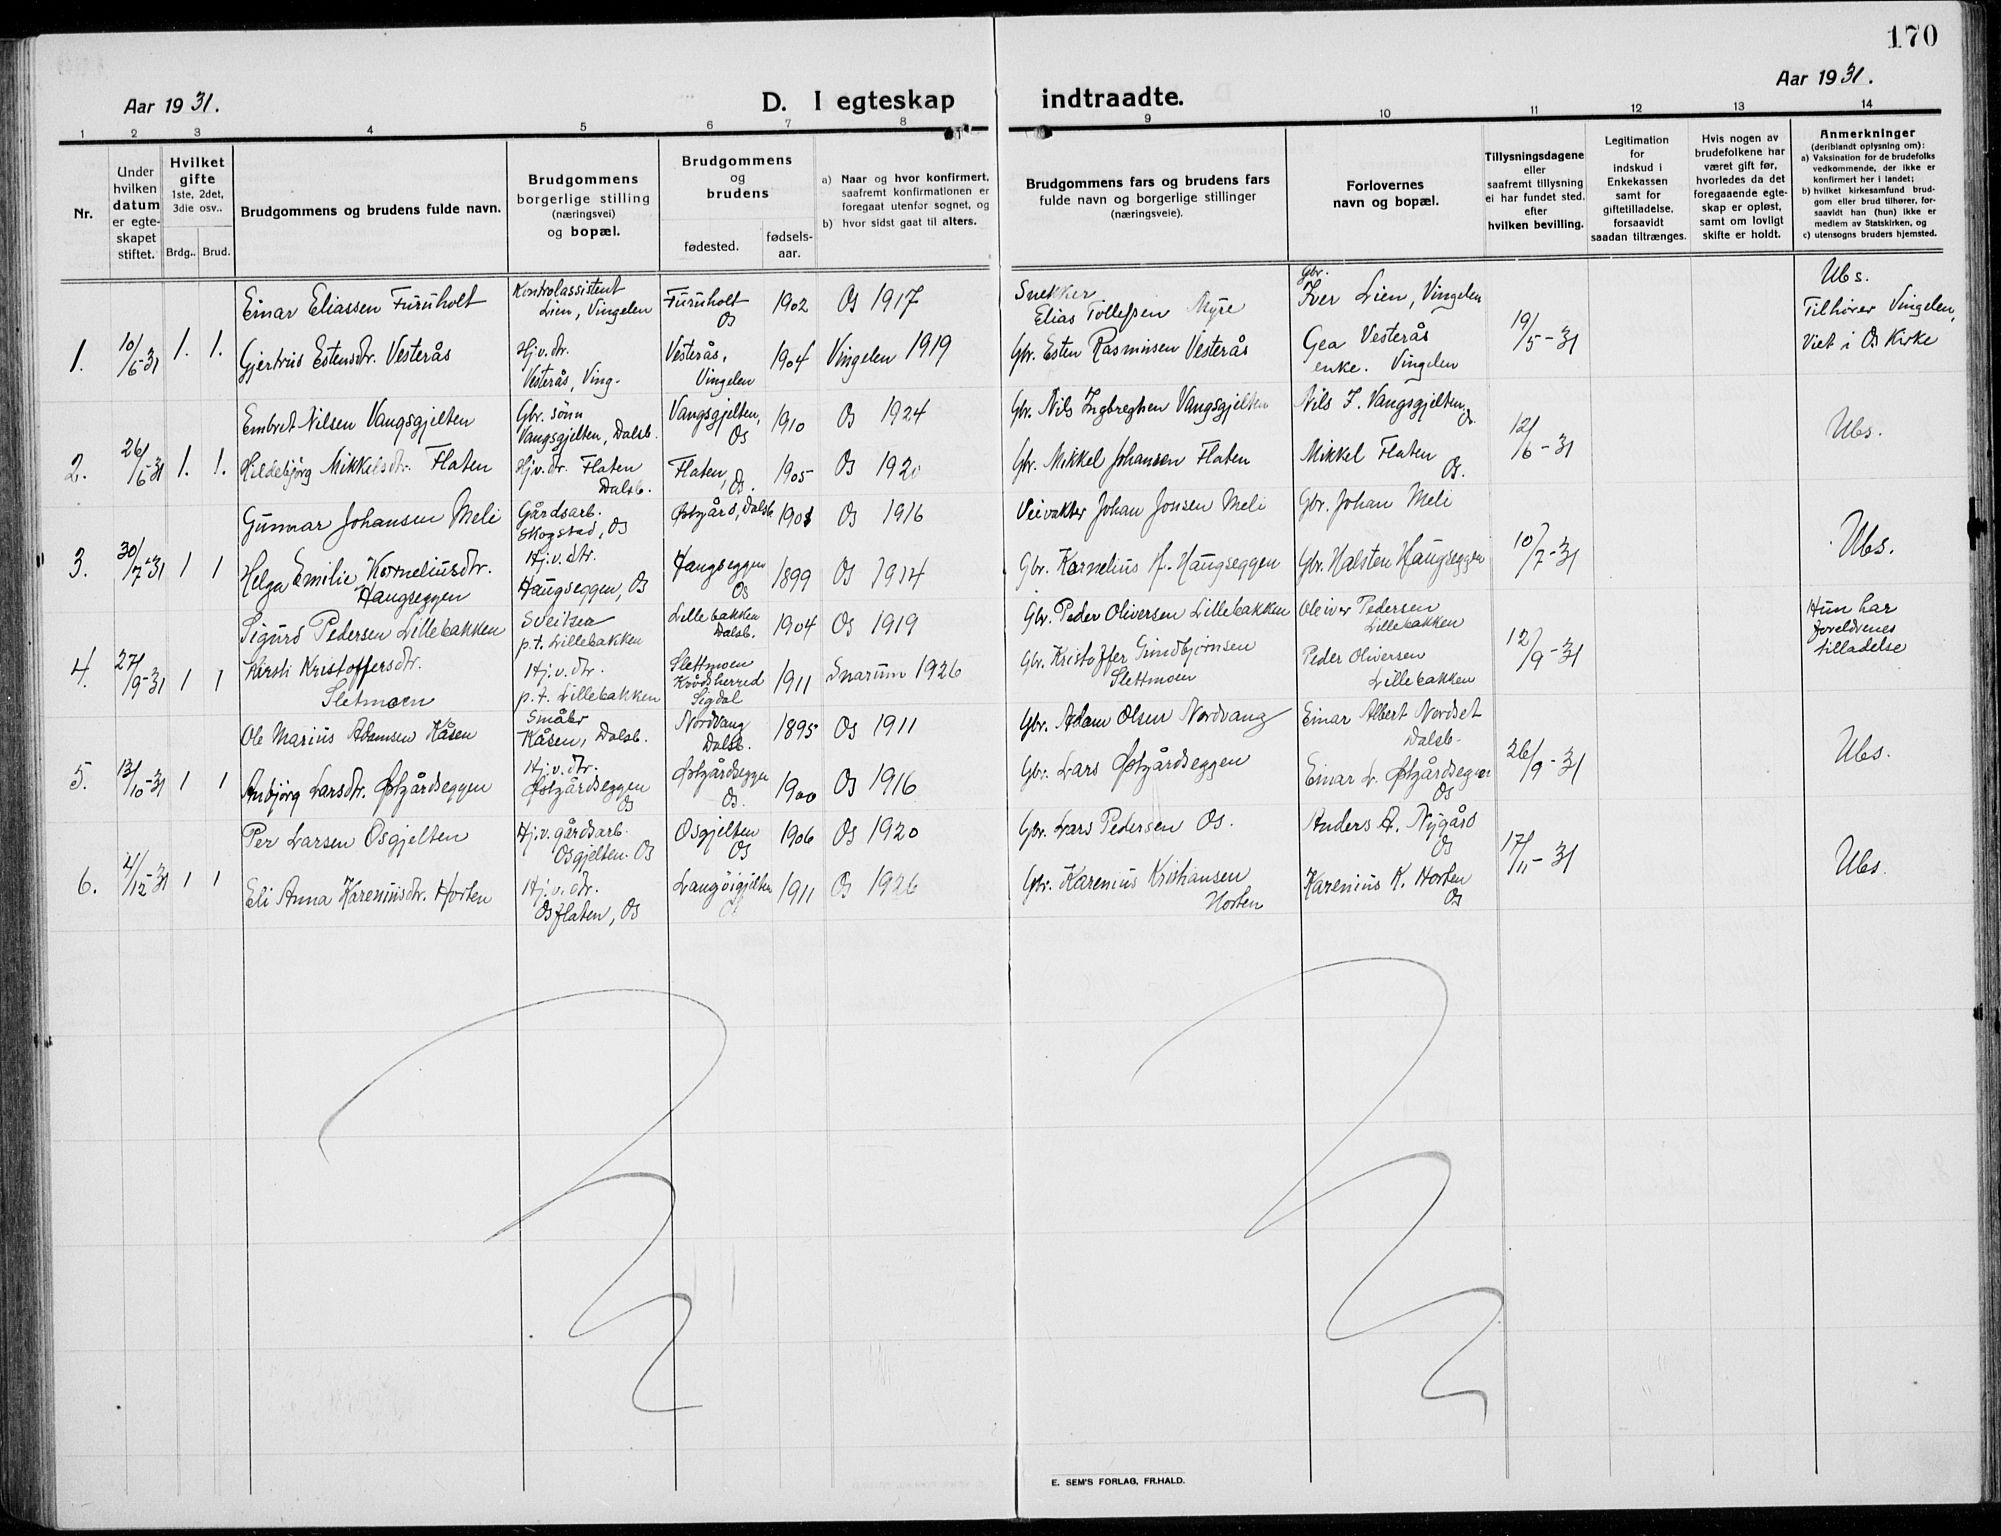 170
Aar 1931.
D. I egteskap indtraadte.
Aar 1931.
1 2 3 4 5 6 7 8 9 10 11 12 13 14
Nr.
Under hvilken datum er egteskapet stiftet.
Hvilket gifte
1ste, 2det, 3die osv..
Brdg.. Brud.
Brudgommens og brudens fulde navn.
Brudgommens borgerlige stilling (næringsvei) og bopæl.
Brudgommens og brudens
fødested.
fødselsaar.
a) Naar og hvor konfirmert, saafremt konfirmationen er foregaat utenfor sognet, og
b) hvor sidst gaat til alters.
Brudgommens fars og brudens fars fulde navn og borgerlige stillinger (næringsveie).
Forlovernes navn og bopæl.
Tillysningsdagene eller saafremt tillysning ei har fundet sted, efter hvilken bevilling.
Legitimation for indskud i Enkekassen samt for giftetilladelse, forsaavidt saadan tiltrænges.
Hvis nogen av brudefolkene har været gift før, hvorledes da det foregaaende egteskap er opløst, samt om lovligt skifte er holdt.
Anmerkninger (deriblandt oplysning om):
a) Vaksination for de brudefolks vedkommende, der ikke er konfirmert her i landet;
b) hvilket kirkesamfund brudgom eller brud tilhører, forsaavidt han (hun) ikke er medlem av Statskirken, og
c) utensogns bruders hjemsted.
Einar Eliassen Furuholt Kontrolassistent Lien, Vingelen Furuholt Os 1902 Os 1917 Snekker Elias Tollefsen Myre Gbr. Iver Lien, Vingelen Ubs.
1. 10/6-31 1. 1. Gjertrus Estensdtr. Vesterås Hj.v.dtr. Vesterås, Ving. Vesterås, Vingelen 1904 Vingelen 1919 Gbr. Esten Rasmusen Vesterås Gea Vesterås enke. Vingelen 19/5-31 Tilhører Vingelen, Viet i Os Kirke
Embret Nilsen Vangsgjelten Gbr. sønn Vangsgjelten, Dalsb. Vangsgjelten, Os 1910 Os 1924 Gbr. Nils Ingbregtsen Vangsgjelten Nils I. Vangsgjelten, Os
2. 26/6-31 1. 1. Hildebjørg Mikkelsdtr. Flaten Hjv. dtr. Flaten Dalsb. Flaten, Os. 1905 Os 1920 Gbr. Mikkel Johansen Flaten Mikkel Flaten Os. 12/6-31 Ubs.
Gunnar Johansen Meli Gårdsarb. Skogstad, Os Østgård, Dalsb 1901 Os 1916 Veivakter Johan Jonsen Meli Gbr. Johan Meli
3. 30/7-31 1 1 Helga Emilie Korneliusdtr. Haugseggen Hj.v. dtr. Haugseggen, Os Haugseggen Os 1899 Os 1914 Gbr. Kornelius H. Haugseggen Gbr. Halsten Haugseggen 10/7-31 Ubs.
Sigurd Pedersen Lillebakken Sveitser p.t. Lillebakken Lillebakken Dalsb. 1904 Os 1919 Gbr. Peder Oliversen Lillebakken Oliver Pedersen Lillebakken
4. 27/9-31 1 1 Kirsti Kristoffersdtr. Sletmoen Hj.v. dtr. p.t. Lillebakken Slettmoen Krødsherred Sigdal 1911 Snarum 1926 Gbr. Kristoffer Gundbjørnsen Slettmoen Peder Oliversen Lillebakken 12/9-31 Hun har foreldrenes tilladelse
Ole Marius Adamsen Kåsen Småbr Kåsen, Dalsb. Nordvang Dalsb. 1895 Os 1911 Gbr. Adam Olsen Nordvang Einar Albert Nordset Dalsb.
5. 13/10-31 1 1 Anbjørg Larsdtr. Østgårdseggen Hj.v. dtr. Østgårdseggen Os Østgårdseggen Os. 1900 Os 1916 Gbr. Lars Østgårdseggen Einar L. Østgårdseggen Os 26/9-31 Ubs.
Per Larsen Osgjelten Hj.v. gårdsarb. Osgjelten. Os Osgjelten Os 1906 Os 1920 Gbr. Lars Pedersen Os. Anders A. Nygård Os
6. 4/12-31 1 1 Eli Anna Kareniusdtr. Horten Hj.v. dtr. Osflaten, Os Langøigjelten Os 1911 Os 1926 Gbr. Karenius Kristiansen Horten Karenius K. Horten Os 17/11-31 Ubs.
E. SEM'S FORLAG, FR.HALD.